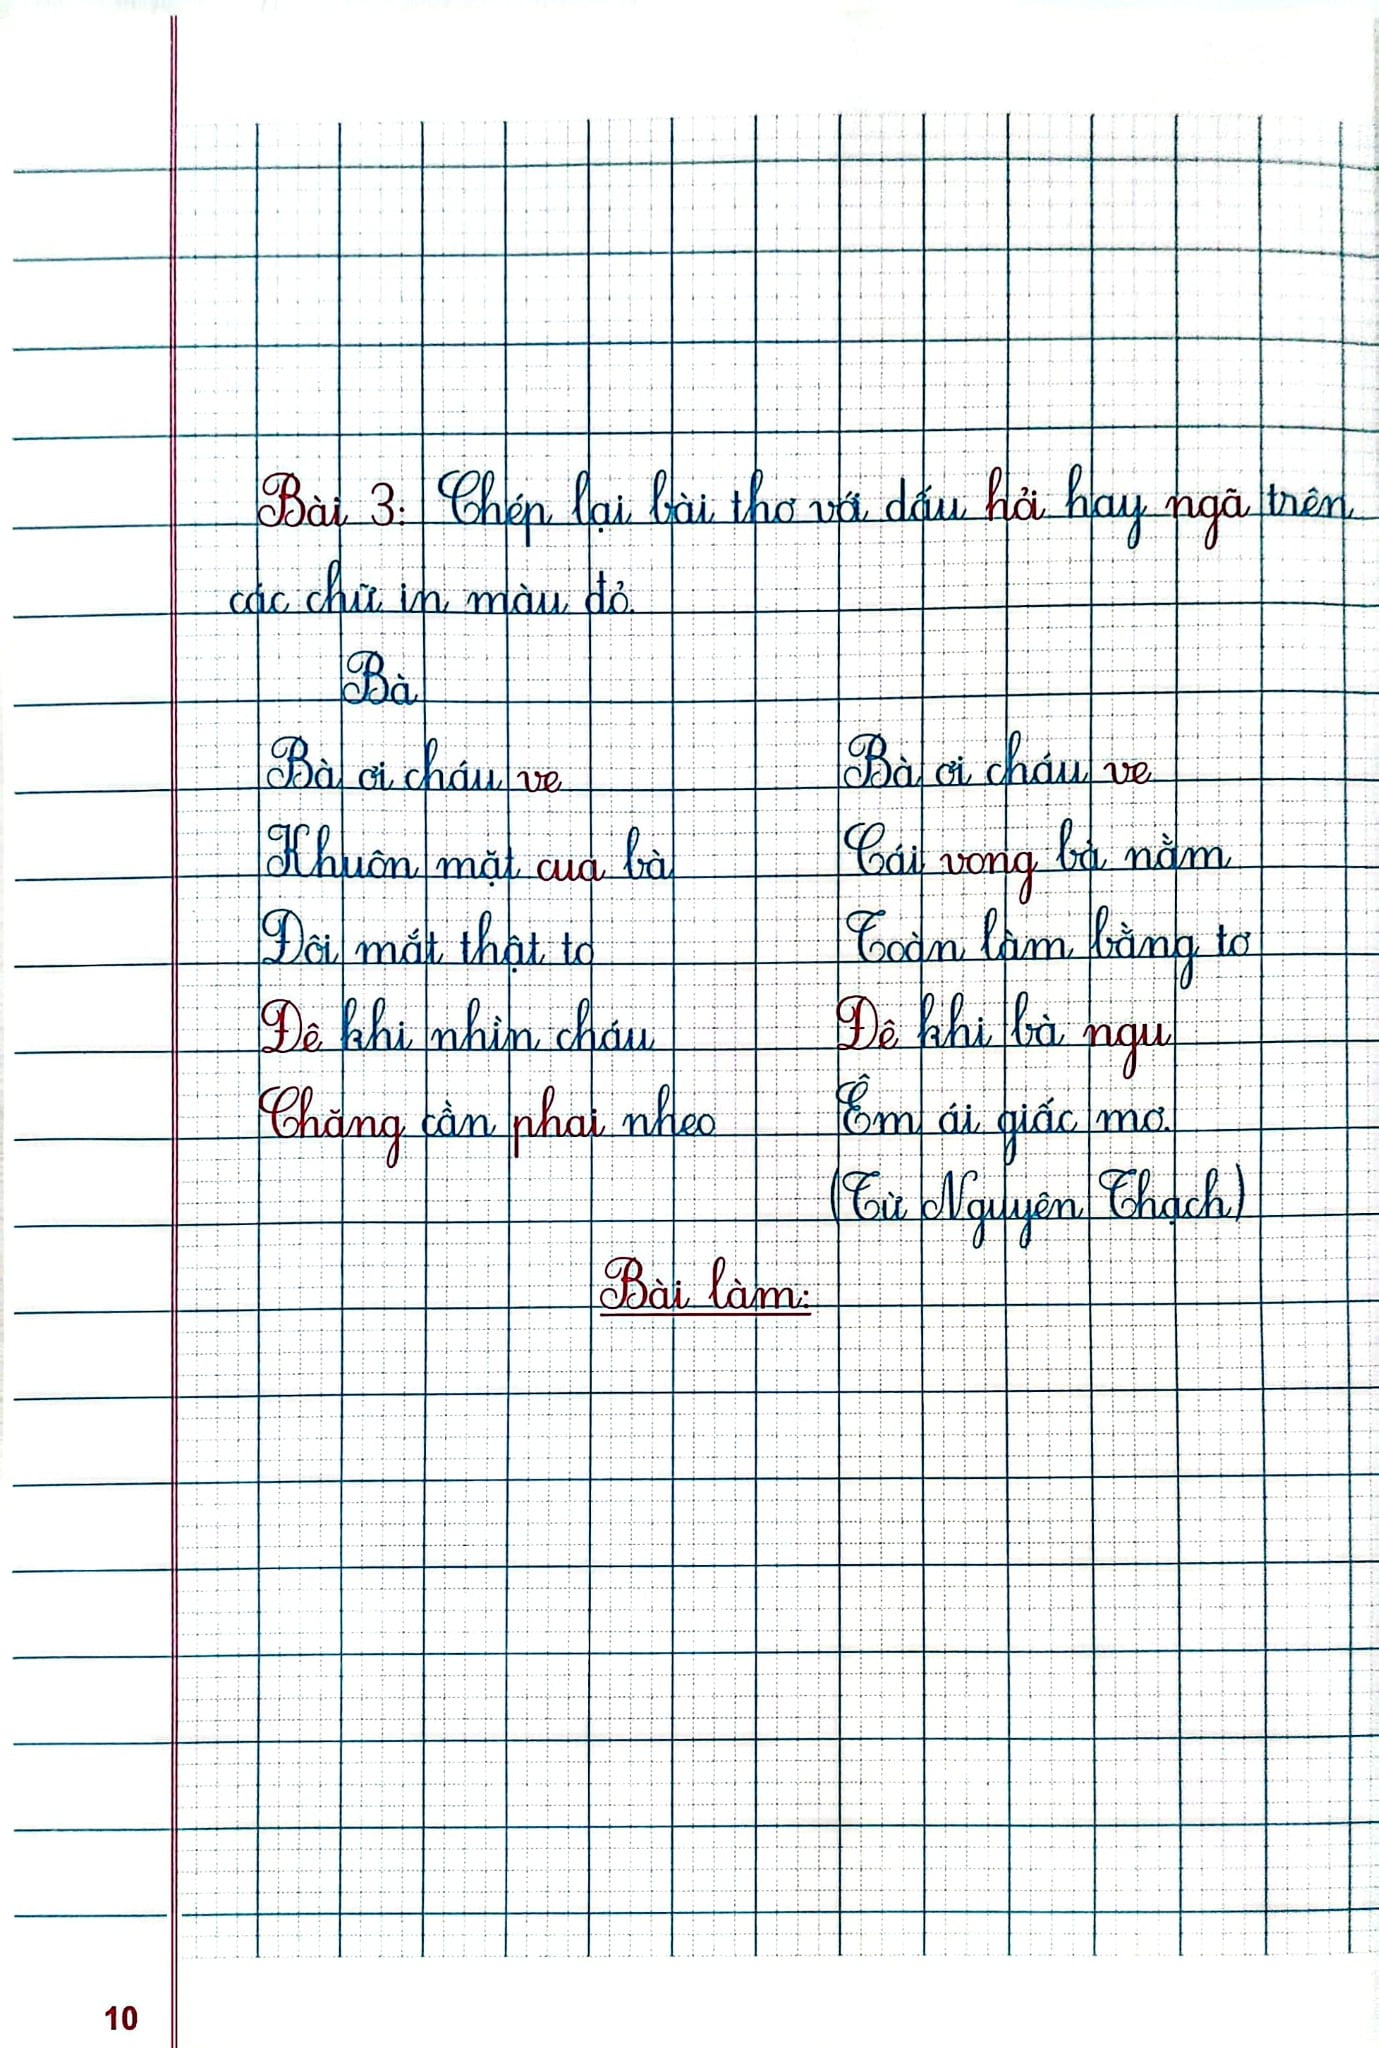 Bài 3: Chép lại bài thơ với dấu hỏi hay ngã trên
các chữ in màu đỏ.
Bà
Bà ơi cháu ve
Khuôn mặt cua bà
Đôi mắt thật to
Đê khi nhìn cháu
Chăng cần phai nheo
Bà ơi cháu ve
Cái vong bà nằm
Toàn làm bằng tơ
Đê khi bà ngu
Êm ái giấc mơ.
(Từ Nguyên Thạch)
Bài làm:
10